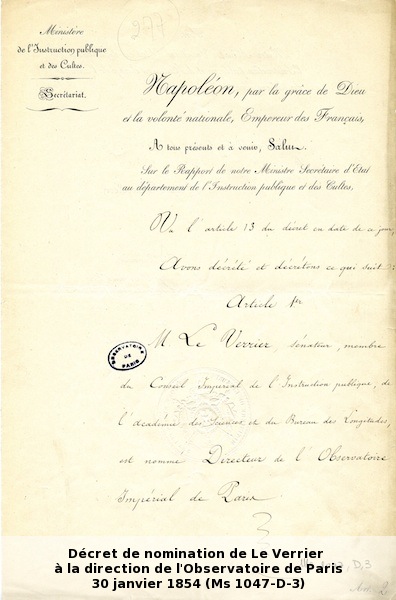 277
Ministère
de l'Instruction publique
et des Cultes.
Secrétariat.
Napoléon, par la grâce de Dieu
et la volonté nationale, Empereur des Français,
A tous présents et à venir, Salut.
Sur le Rapport de notre Ministre Secrétaire d'Etat
au département de l'Instruction publique et des Cultes,
Vu l'article 13 du décret en date de ce jour,
Avons décrété et décrétons ce qui suit :
Article 1er
M Le Verrier sénateur, membre
OBSERVATOIRE
DE
PARIS
du Conseil Impérial de l'Instruction publique, de
l'académie des Sciences et du Bureau des Longitudes,
est nommé Directeur de l'Observatoire
Impérial de Paris
D,3
Art. 2
Décret de nomination de Le Verrier
à la direction de l'Observatoire de Paris
30 janvier 1854 (Ms 1047-D-3)